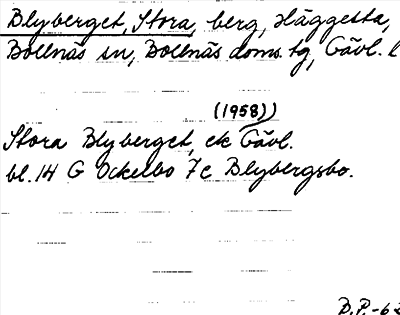 Blyberget, Stora, berg, Häggesta,
Bollnäs sn, Bollnäs doms. tg, Gävl. l
(1958))
Stora Blyberget, ek Gävl.
bl. 14 G Ockelbo 7c Blybergsbo.
D.P.-62